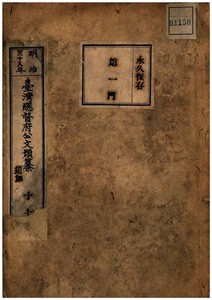 01150
永久保存
第一門
明治
三十九年
臺灣總督府公文類纂